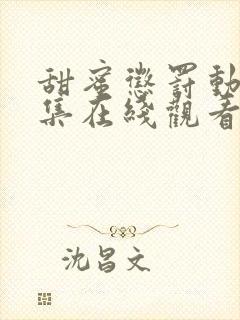 甜蜜懲罰動
集在綫觀看
沈昌文